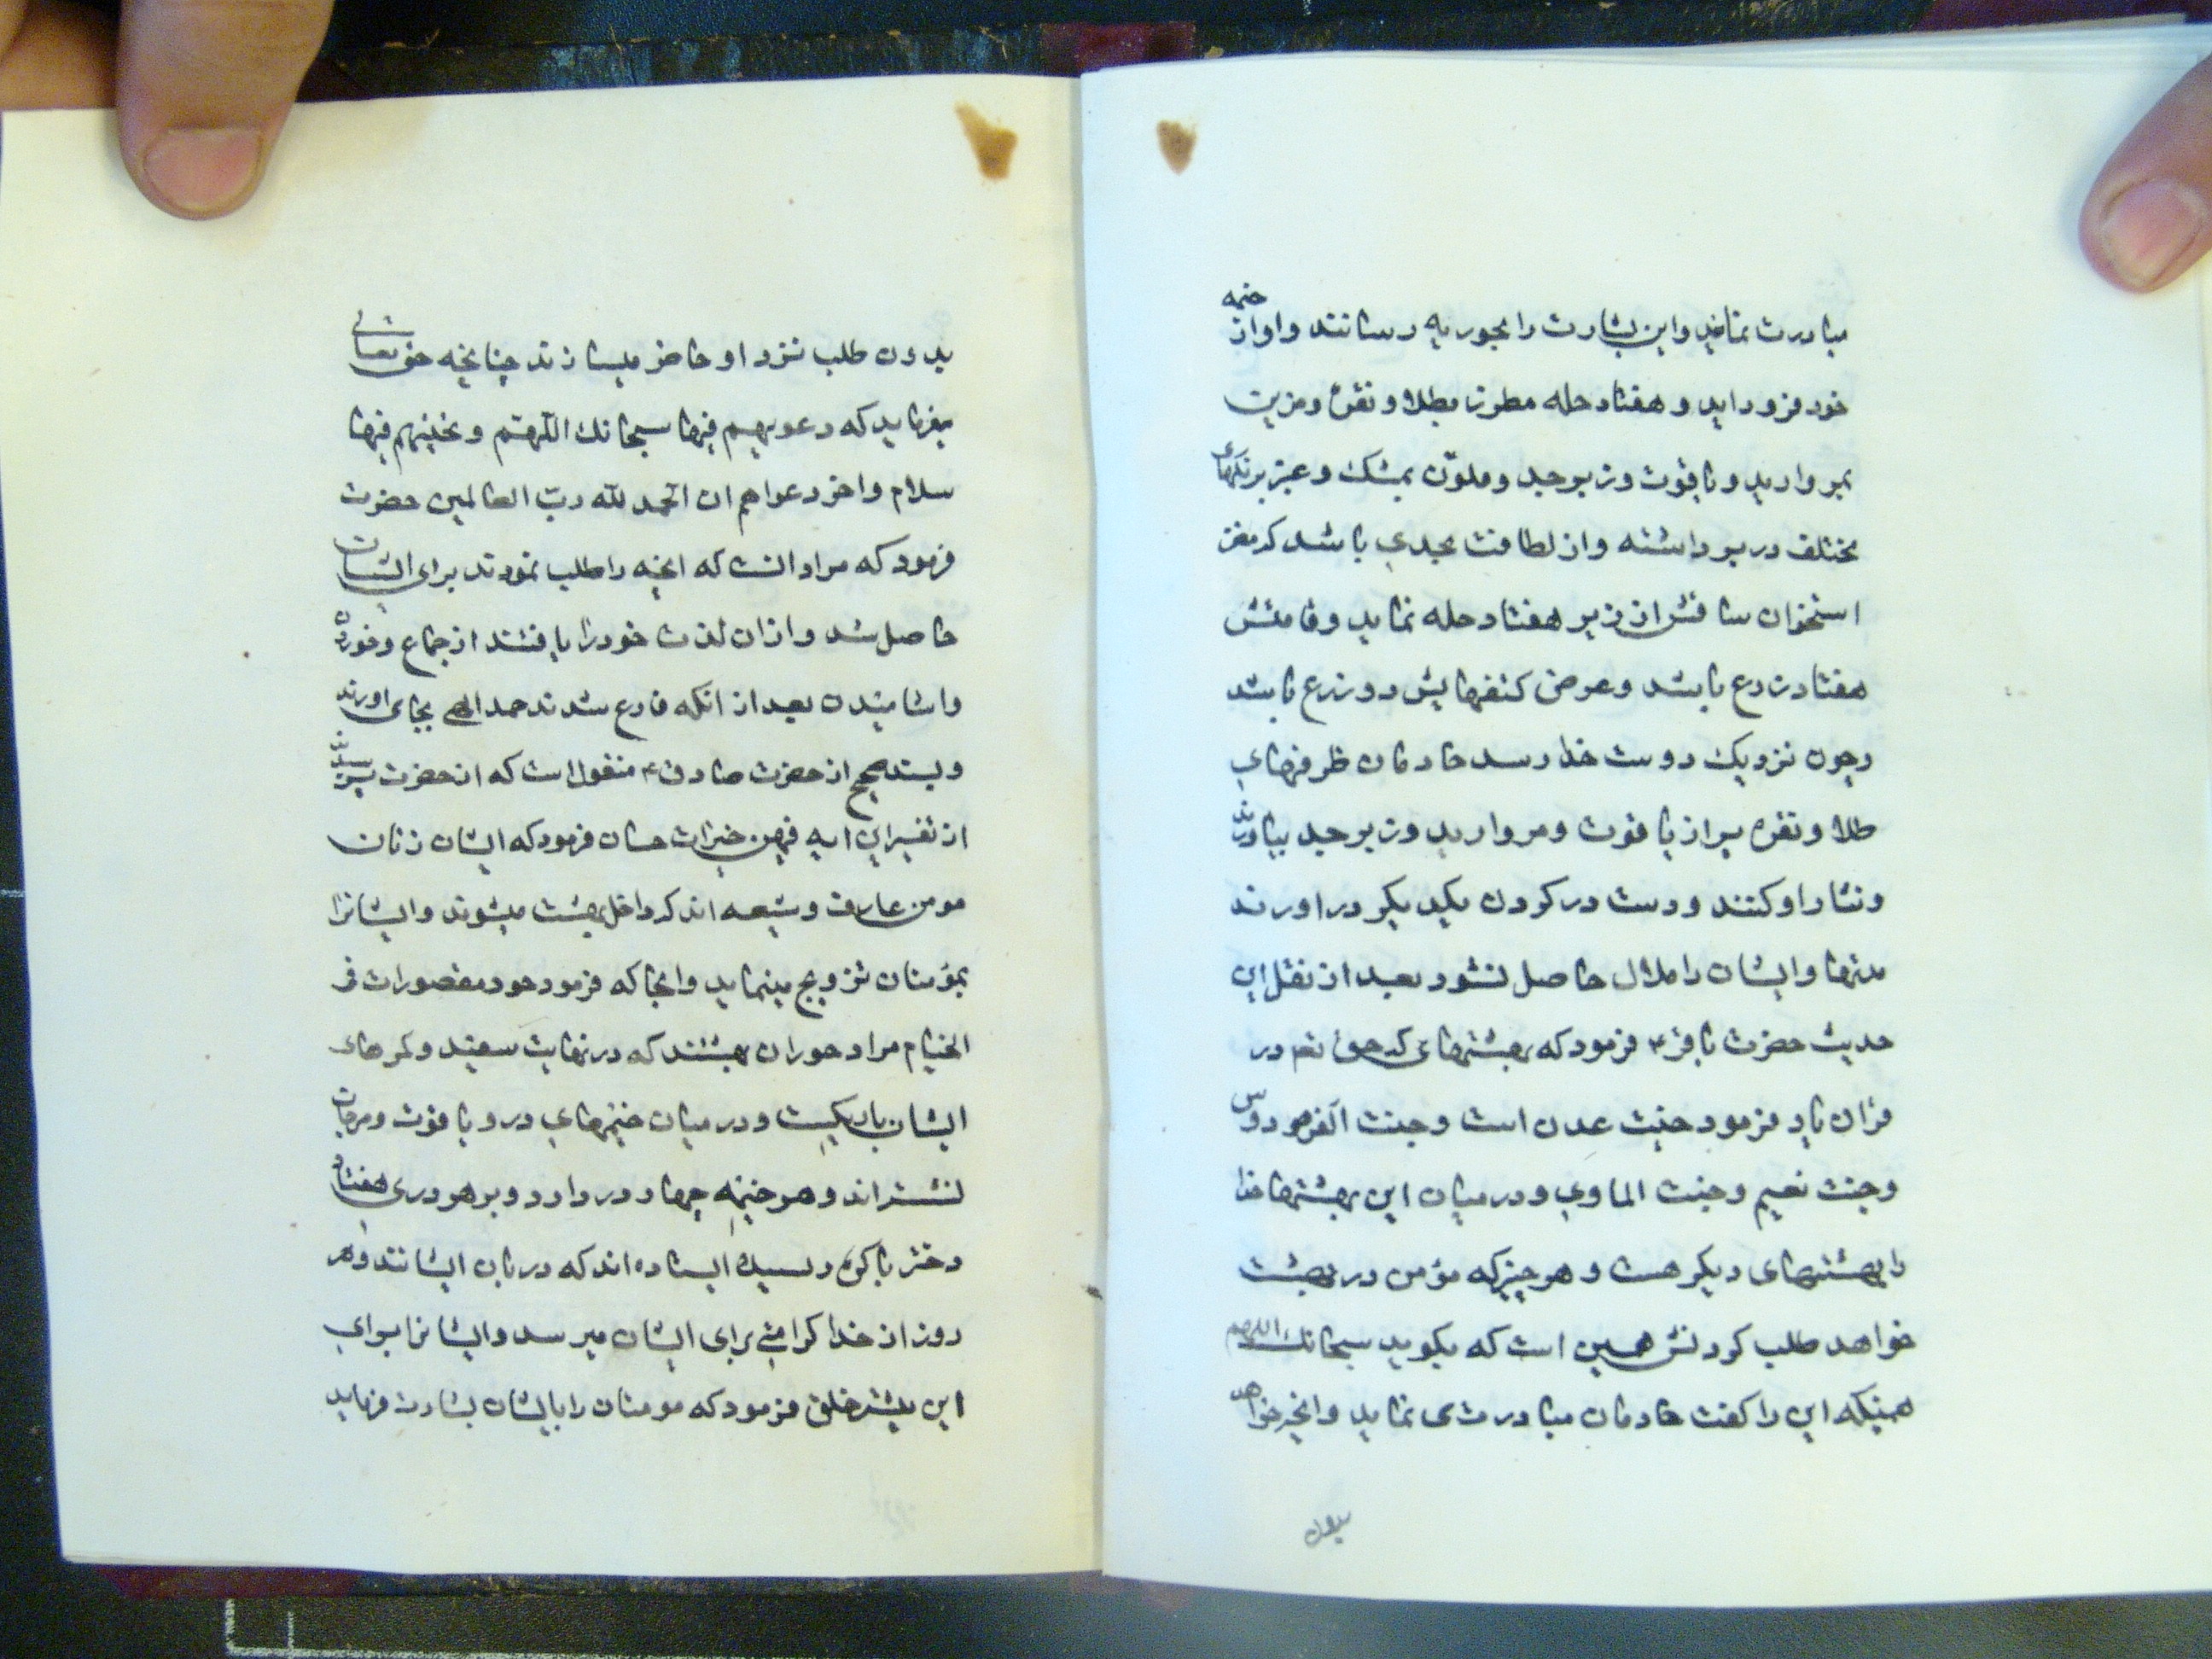 مبادرت نمایند و این بشارت را بحوریه رسانند و او از خیمه
خود فرود اید و هفتاد حله مطرز بطلا و نقره و مزین
بمروارید و یاقوت و زبرجد و ملون بمشک و عنبر برنکهای
مختلف در بر داشته و از لطافت بحدی باشد که مغز
استخوان ساقش از زیر هفتاد حله نماید و قامتش
هفتاد ذرع باشد و عرض کتفهایش دو ذرع باشد
وچون نزدیک دوست خدا رسد خادمان ظرفهای
طلا و نقره پر از یاقوت و مروارید و زبرجد بیاورند
و نثار او کنند و دست در کردن یکدیکر در اورند
مدتها و ایشان را ملال حاصل نشود بعد از نقل این
حدیث حضرت باقر ع فرمود که بهشتهای که حق تعم در
قران یاد فرمود جنت عدن است و جنت الفردوس
و جنت نعیم و جنت الماوی و در میان این بهشتها خدا
را بهشتهای دیکر هست و هر چیز که مؤمن در بهشت
خواهد طلب کردنش همین است که بکوید سبحانک اللهم
همینکه این را کفت خادمان مبادرت می نماید و انچه خواهد
بدون
بدون طلب نزد او حاضر میسازند چنانچه حق تعالی
میفرماید که دعویهم فیها سبحانک اللهم و تحیتهم فیها
سلام و اخر دعواهم ان الحمد لله رب العالمین حضرت
فرمود که مراد انست که انچه را طلب نمودند برای ایشان
حاصل شد و از ان لذت خود را یافتند از جماع و خوردن
واشامیدن بعد از انکه فارغ شدند حمد الهی بجای اورند
و بسند صحیح از حضرت صادق ع منقول است که از حضرت پرسیدند
از تفسیر این ایه فیهن خیرات حسان فرمود که ایشان زنان
مومن عارف و شیعه اند که داخل بهشت میشوند و ایشانرا
بمؤمنان تزویج مینماید و انجا که فرمود حور مقصورات فی
الخیام مراد حوران بهشتند که در نهایت سفیدند و کمرهای
ایشان باریکست و در میان خیمهای در و یاقوت و مرجان
نشسته‌اند و هر خیمه چهار در دارد و بر هر دری هفتاد
دختر باکره رسیده ایستاده اند که دربان ایشانند و هر
روز از خدا کرامتی برای ایشان میرسد و ایشانرا برای
این پیشتر خلق فرمود که مومنان را بایشان بشارت فرماید